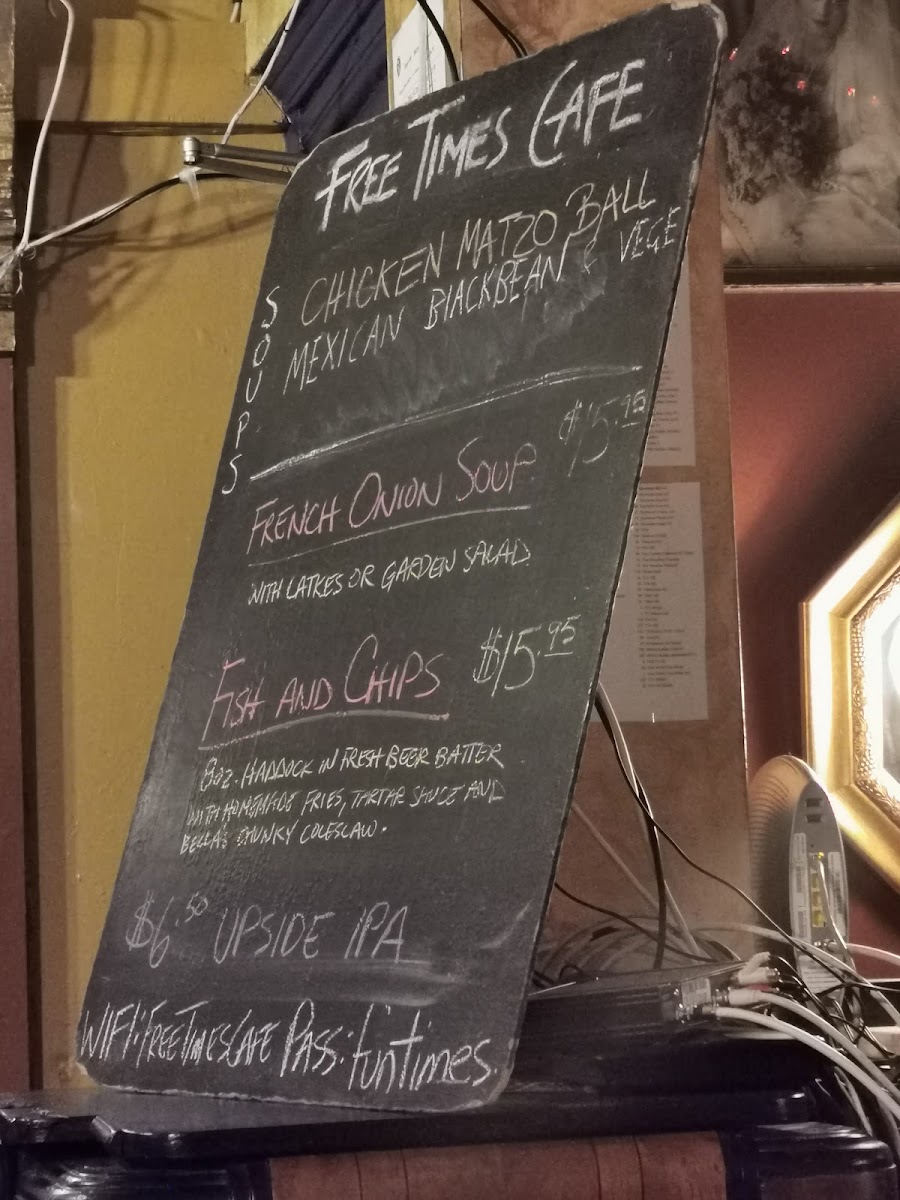 FREE TIMES CAFE
SOUPS
CHICKEN MATZO BALL
MEXICAN BLACKBEAN & VEGE
FRENCH ONION SOUP $15.95
WITH LATKES OR GARDEN SALAD
FISH AND CHIPS $15.95
8oz. HADDOCK IN FRESH BEER BATTER
WITH HOMEMADE FRIES, TARTAR SAUCE AND
BELLA'S CHUNKY COLESLAW.
$6.50 UPSIDE IPA
WIFI: FREETIMESCAFE PASS: funtimes